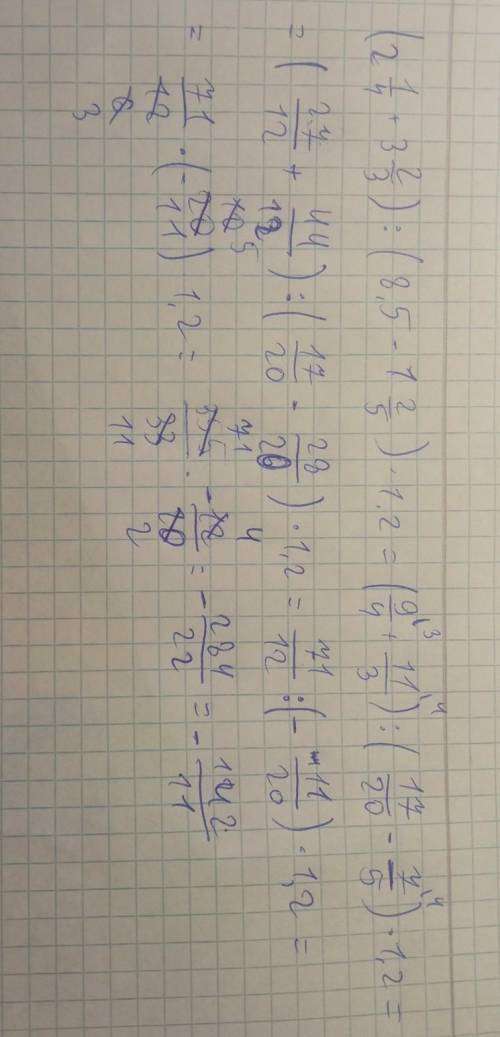 (2 1/4 + 3 2/3) : (8,5 - 1 2/5) · 1,2 = (9/4 \3 + 11/3 \4) : (17/20 - 7/5 \4) · 1,2 =
= (27/12 + 44/12) : (17/20 - 28/20) · 1,2 = 71/12 : (- 11/20) · 1,2 =
= 71/12 · (- 20/11) 1,2 = 355/33 · - 12/10 = - 284/22 = - 142/11